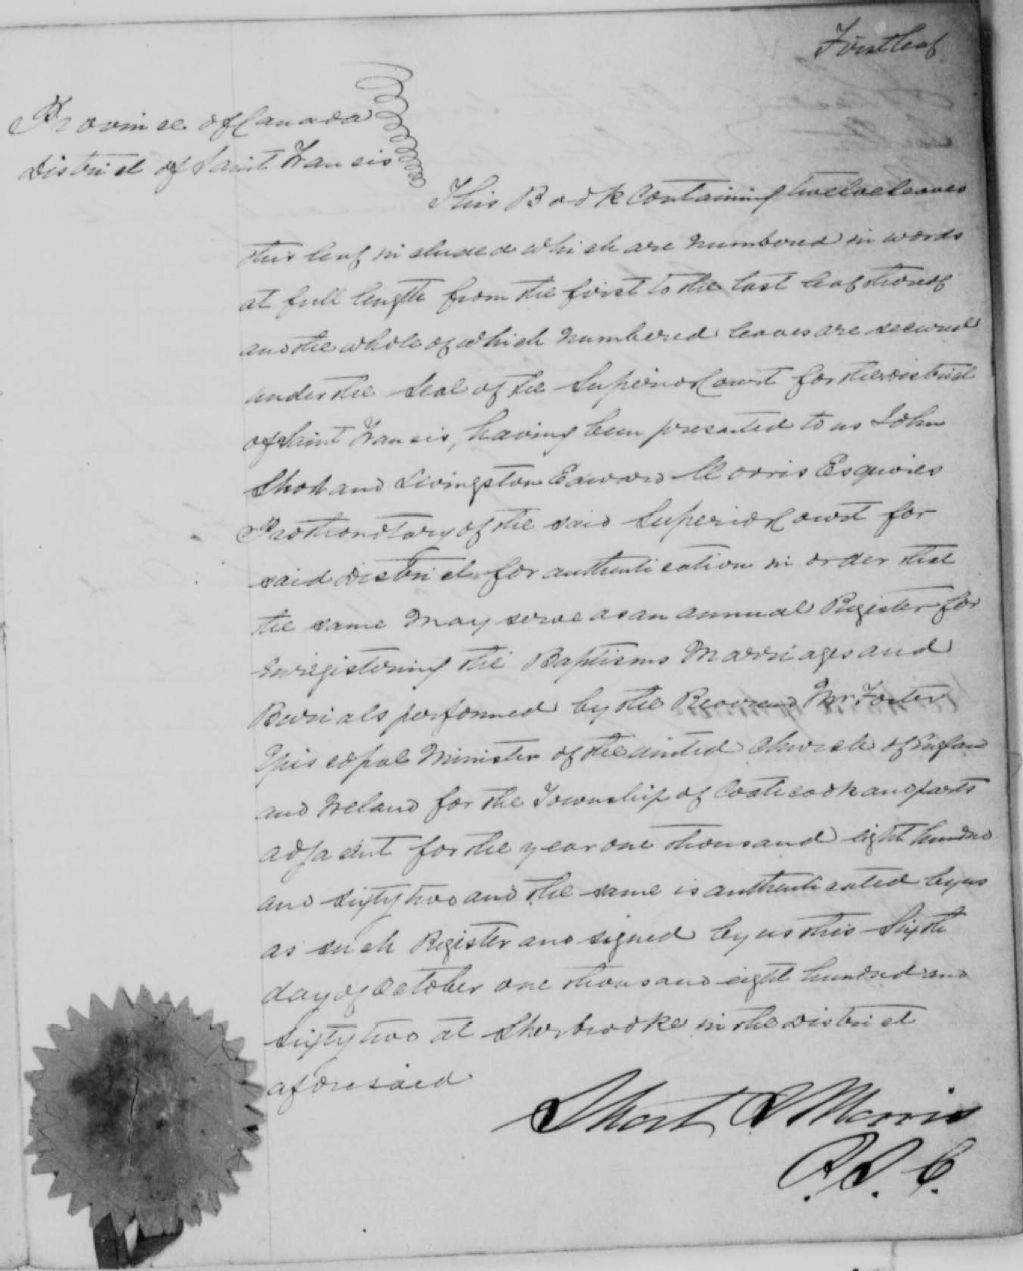 First leaf
Province of Canada
District of Saint Francis
This Book Containing twelve leaves
this leaf included which are numbered in words
at full length from the first to the last leaf thereof
and the whole of which numbered leaves are secured
under the Seal of the Superior Court for the District
of Saint Francis, having been presented to us John
Short and Livingston Edward Morris Esquires
Prothonotary of the said Superior Court for
said District for authentication in order that
the same may serve as an annual Register for
enregistering the Baptisms Marriages and
Burials performed by the Reverend Mr Foster
Episcopal Minister of the united Church of England
and Ireland for the Township of Coaticook and parts
adjacent for the year one thousand eight hundred
and sixty two and the same is authenticated by us
as such Register and signed by us this Sixth
day of October one thousand eight hundred and
Sixty two at Sherbrooke in the District
aforesaid
Short & Morris
P. S. C.